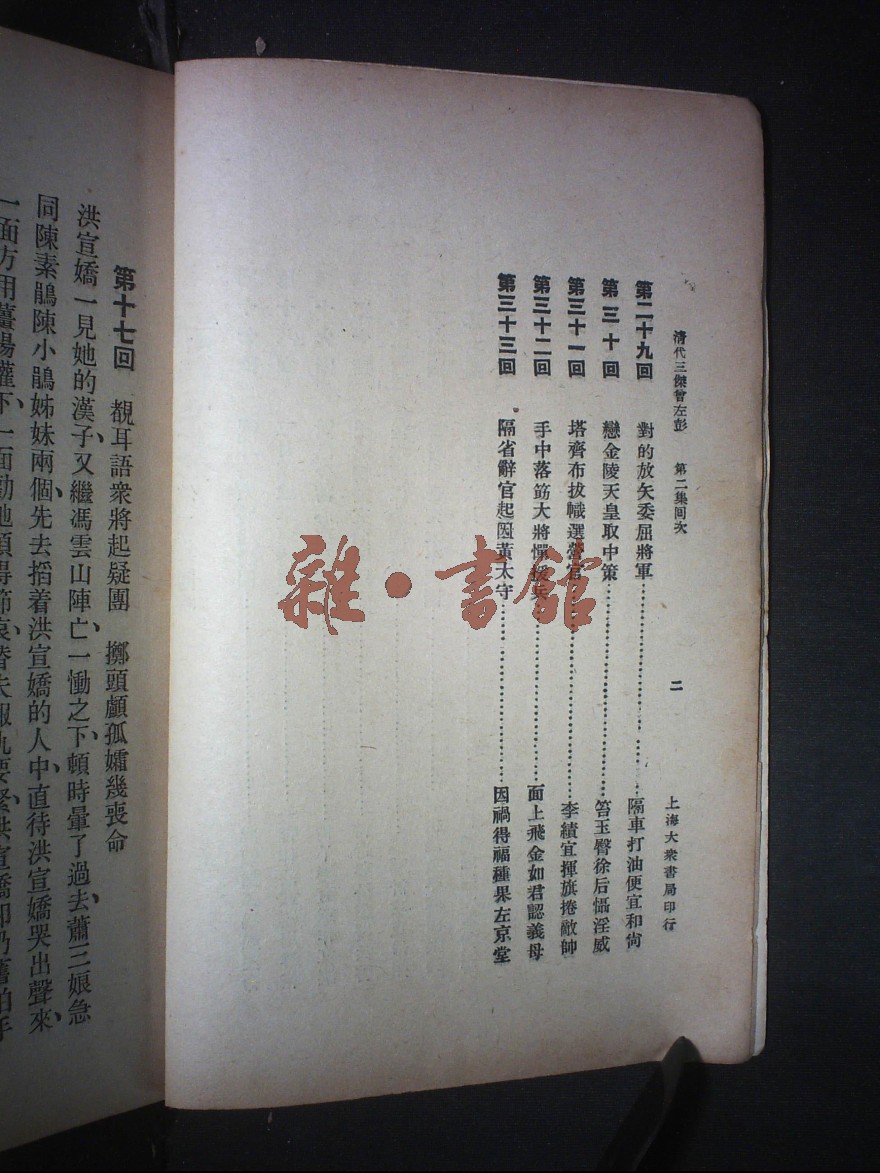 清代三傑曾左彭 第二集回次 二 上海大衆書局印行
第二十九回 對的放矢委屈將軍 隔車打油便宜和尙
第三十回 戀金陵天皇取中策 笞玉臀徐后懾淫威
第三十一回 塔齊布拔幟選營官 李續宜揮旗捲敵帥
第三十二回 手中落筋大將懼援兵 面上飛金如君認義母
第三十三回 隔省辭官起因黃太守 因禍得福種果左京堂
雜·書館
第十七回 覩耳語衆將起疑團 擲頭顱孤孀幾喪命
洪宣嬌一見她的漢子、又繼馮雲山陣亡、一慟之下、頓時暈了過去、蕭三娘急
同陳素鵑陳小鵑姊妹兩個、先去搯着洪宣嬌的人中、直待洪宣嬌哭出聲來、
一面方用薑湯灌下、一面勸她須得節哀、替夫報仇要緊、洪宣嬌卽